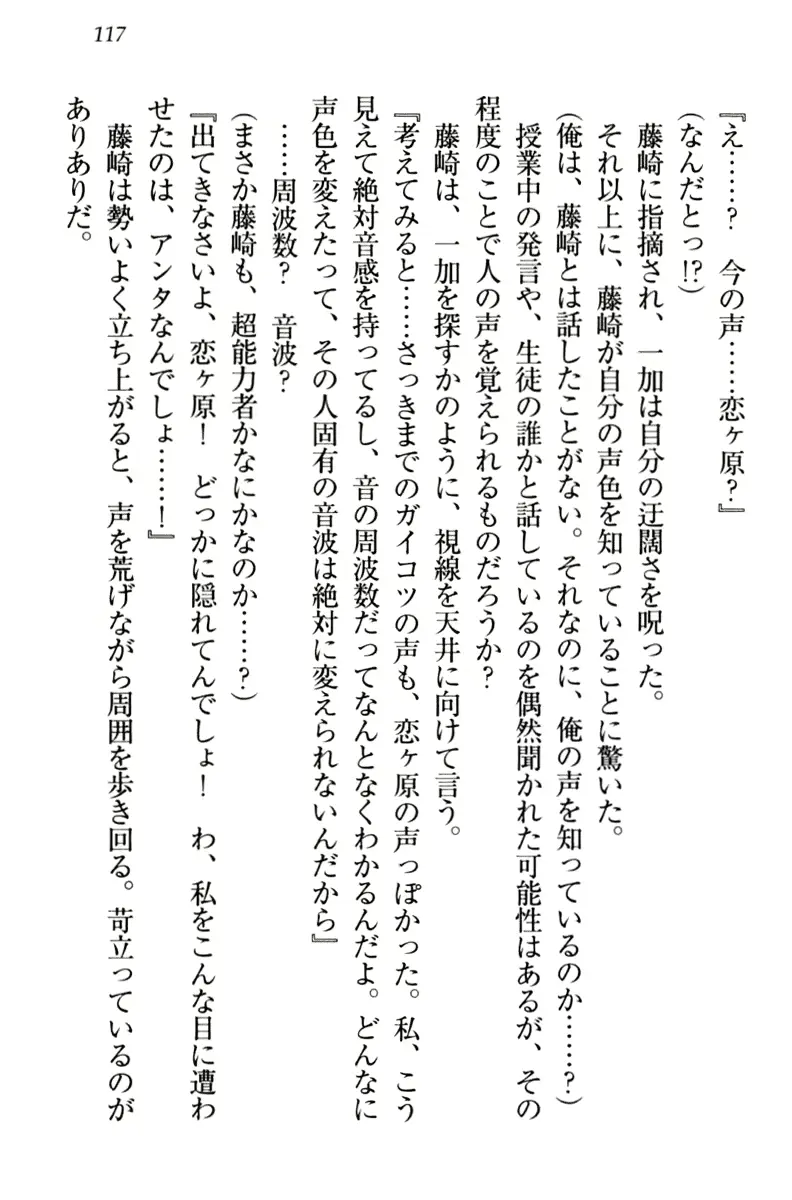 117
『え……？　今の声……恋ヶ原？』
(なんだとっ!?)
　藤崎に指摘され、一加は自分の迂闊さを呪った。
　それ以上に、藤崎が自分の声色を知っていることに驚いた。
(俺は、藤崎とは話したことがない。それなのに、俺の声を知っているのか……？)
　授業中の発言や、生徒の誰かと話しているのを偶然聞かれた可能性はあるが、その
程度のことで人の声を覚えられるものだろうか？
　藤崎は、一加を探すかのように、視線を天井に向けて言う。
『考えてみると……さっきまでのガイコツの声も、恋ヶ原の声っぽかった。私、こう
見えて絶対音感を持ってるし、音の周波数だってなんとなくわかるんだよ。どんなに
声色を変えたって、その人固有の音波は絶対に変えられないんだから』
　……周波数？　音波？
(まさか藤崎も、超能力者かなにかなのか……？)
『出てきなさいよ、恋ヶ原！　どっかに隠れてんでしょ！　わ、私をこんな目に遭わ
せたのは、アンタなんでしょ……！』
　藤崎は勢いよく立ち上がると、声を荒げながら周囲を歩き回る。苛立っているのが
ありありだ。